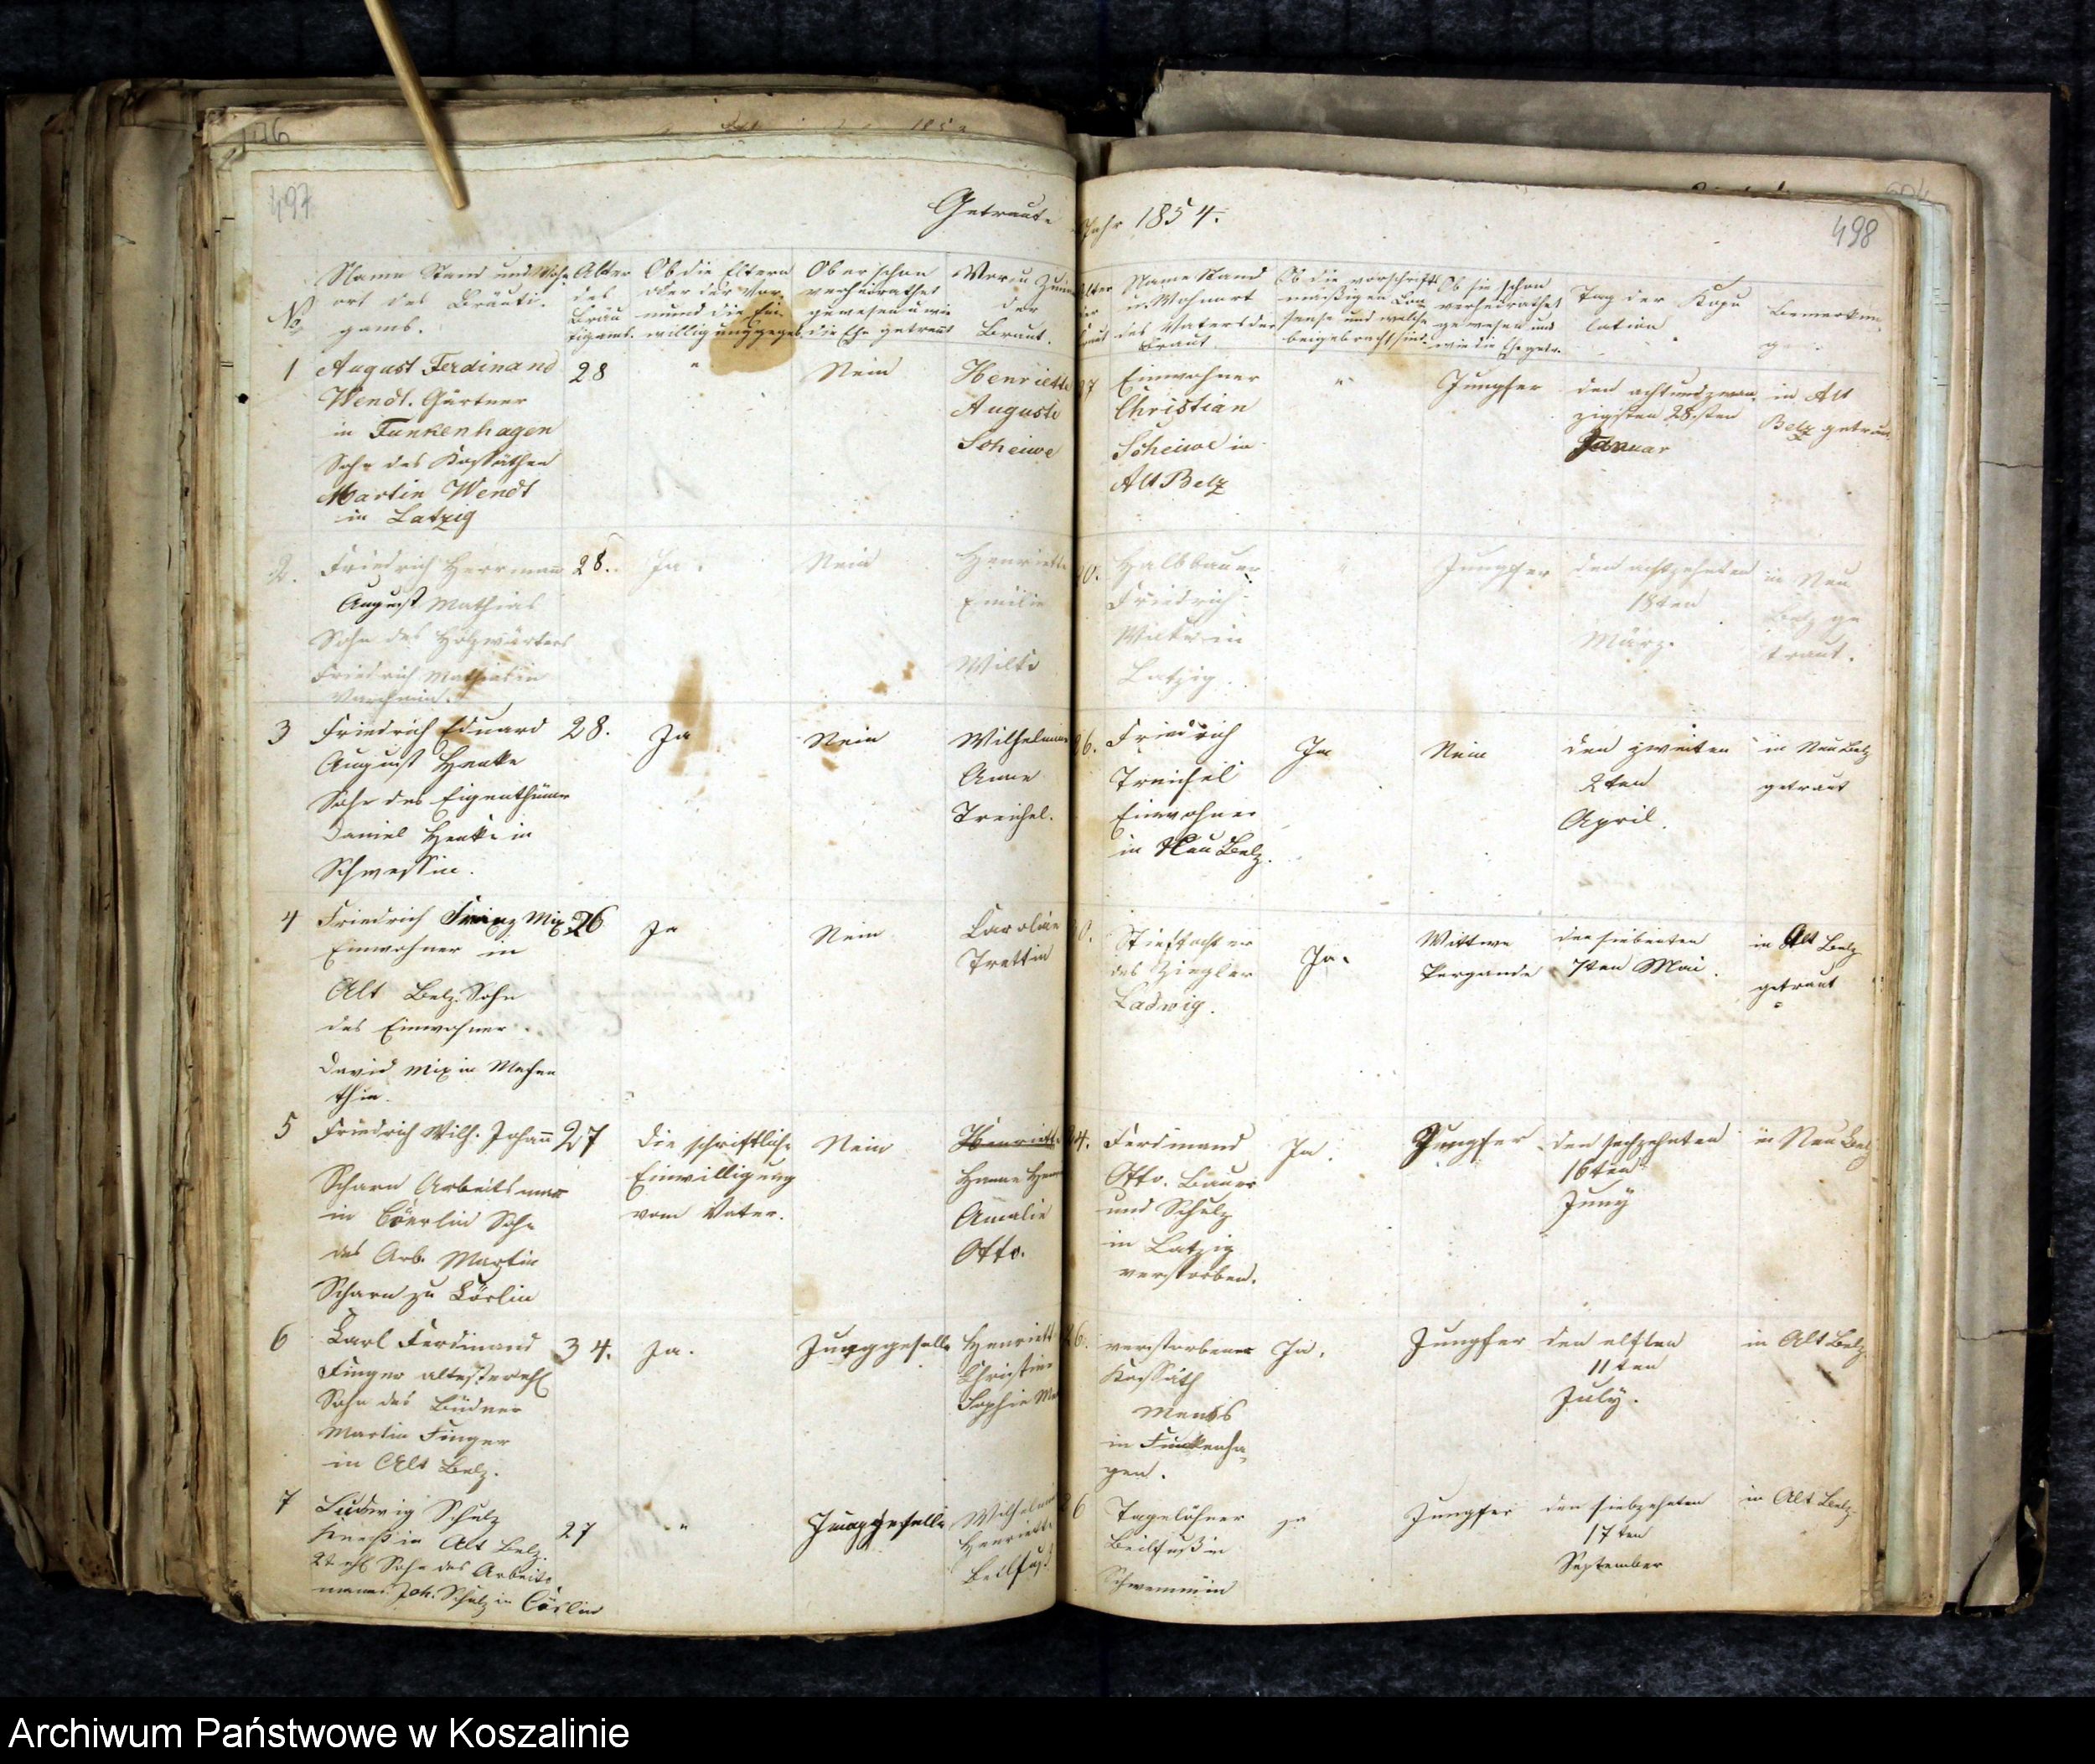 497
Getraute
Jahr 1854.
498
No
Name Stand und Wohn
ort des Bräuti-
gams.
Alter
des
Bräu
tigams.
Ob die Eltern
oder der Vor
mund die Ein
willigung gegeb.
Ob er schon
verheirathet
gewesen u wie
die Ehe getrennt
Vor u Zuname
der
Braut.
Alter
der
Braut
Name Stand
u. Wohnort
des Vaters der
Braut.
Ob die vorschrifts
mäßigen Con
sense und welche
beigebracht sind.
Ob sie schon
verheirathet
gewesen und
wie die Ehe getr.
Tag der Kopu
lation
Bemerkun
gen.
1
August Ferdinand
Wendt. Gärtner
in Funkenhagen
Sohn des Kossäthen
Martin Wendt
in Latzig
28
"
Nein
Henriette
Auguste
Scheiwe
27
Einwohner
Christian
Scheiwe in
Alt Belz
"
Jungfer
den achtundzwan
zigsten 28sten
Januar
in Alt
Belz getraut
2.
Friedrich Herrmann
August Mathias
Sohn des Holzwärters
Friedrich Mathias in
Varchmin.
28.
Ja.
Nein
Henriette
Emilie
Wilke
0.
Halbbauer
Friedrich
Wilke in
Latzig.
"
Jungfer
den achtzehnten
18ten
März.
in Neu
Belz ge
traut.
3
Friedrich Eduard
August Henke
Sohn des Eigenthümer
Daniel Henke in
Schwessin.
28.
Ja
Nein
Wilhelmine
Anne
Treichel.
26.
Friedrich
Treichel
Einwohner
in Neu Belz.
Ja
Nein
den zweiten
2ten
April.
in Neu Belz
getraut
4
Friedrich Franz Mix
Einwohner in
Alt Belz. Sohn
des Einwohner
David Mix in Mochen
thin.
26
Ja
Nein
Caroline
Trettin
0.
Stieftochter
des Ziegler
Ladwig.
Ja.
Wittwe
Pergande
den siebenten
7ten Mai.
in Alt Belz
getraut
5
Friedrich Wilh. Johann
Scharn Arbeitsmann
in Cörlin Sohn
des Arb. Martin
Scharn zu Cörlin
27
Die schriftliche
Einwilligung
vom Vater.
Nein
Henriette
Hanne Hen
Amalie
Otto.
24.
Ferdinand
Otto. Bauer
und Schulz
in Latzig
verstorben.
Ja.
Jungfer
den sechzehnten
16ten
Juny
in Neu Belz
6
Carl Ferdinand
Finger ältester ehl
Sohn des Büdner
Martin Finger
in Alt Belz.
34.
Ja.
Junggeselle
Henriette
Christine
Sophie
26.
verstorbener
Kossäth
in Funkenha
gen.
Ja.
Jungfer
den elften
11ten
July.
in Alt Belz
7
Ludwig Schulz
Knecht in Alt Belz.
2t ehl Sohn des Arbeits
manns Joh. Schulz in Cöslin
27
"
Junggeselle
Wilhelmine
Henriette
6
Tagelöhner
in
Schwemmin
Ja
Jungfer
den siebzehnten
17ten
September
in Alt Belz.
Archiwum Państwowe w Koszalinie